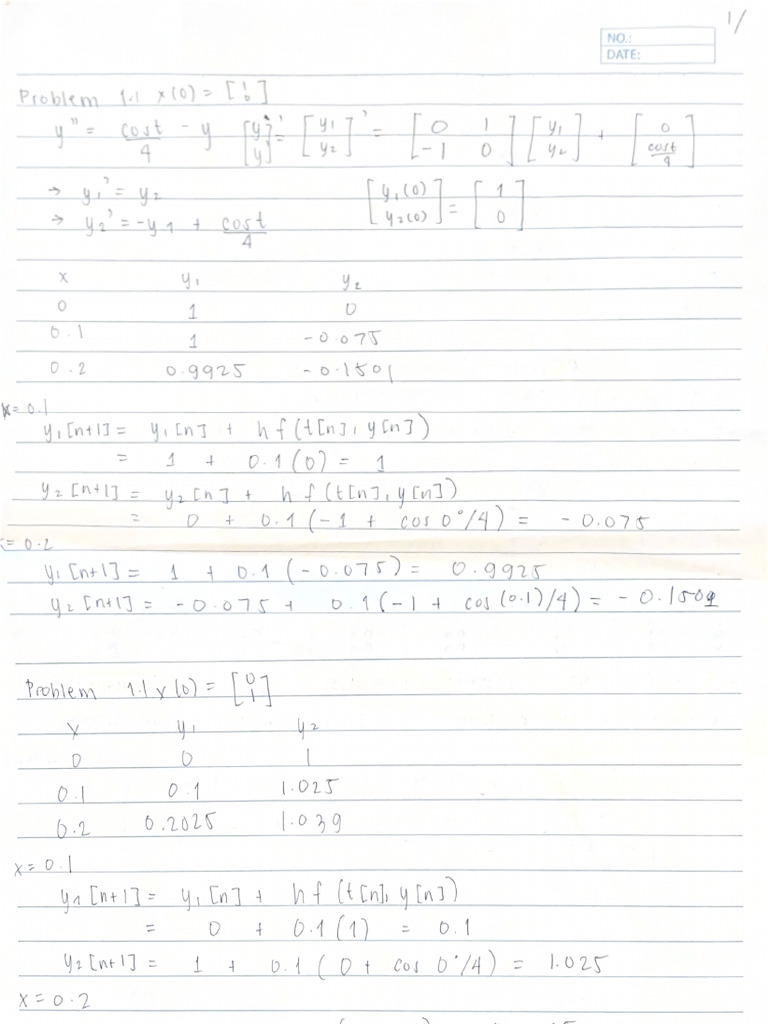 1/
NO.:
DATE:
Problem 1.1 x(0) = [1 0]
y'' = cost/4 - y [y y']' = [y1 y2]' = [0 1 -1 0] [y1 y2] + [0 cost/4]
→ y1' = y2 [y1(0) y2(0)] = [1 0]
→ y2' = -y1 + cost/4
x y1 y2
0 1 0
0.1 1 -0.075
0.2 0.9925 -0.1501
x=0.1
y1[n+1] = y1[n] + hf(t[n], y[n])
= 1 + 0.1(0) = 1
y2[n+1] = y2[n] + hf(t[n], y[n])
= 0 + 0.1(-1 + cos 0°/4) = -0.075
= 0.2
y1[n+1] = 1 + 0.1(-0.075) = 0.9925
y2[n+1] = -0.075 + 0.1(-1 + cos(0.1)/4) = -0.1501
Problem 1.1 x(0) = [0 1]
x y1 y2
0 0 1
0.1 0.1 1.025
0.2 0.2025 1.039
x=0.1
y1[n+1] = y1[n] + hf(t[n], y[n])
= 0 + 0.1(1) = 0.1
y2[n+1] = 1 + 0.1(0 + cos 0°/4) = 1.025
x=0.2